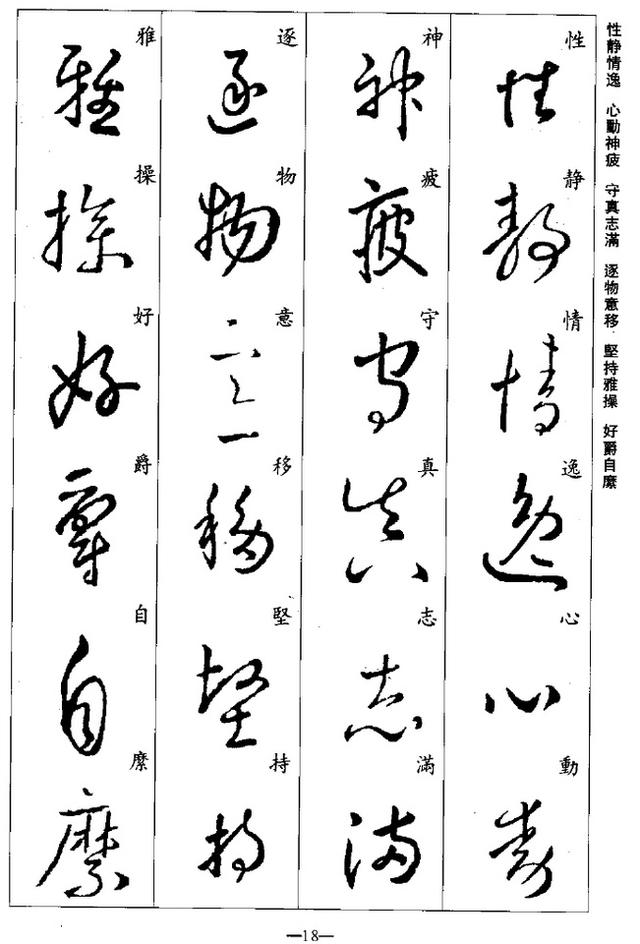 性静情逸 心動神疲 守真志滿 逐物意移 堅持雅操 好爵自縻
性静情逸心動
神疲守真志滿
逐物意移堅持
雅操好爵自縻
—18—